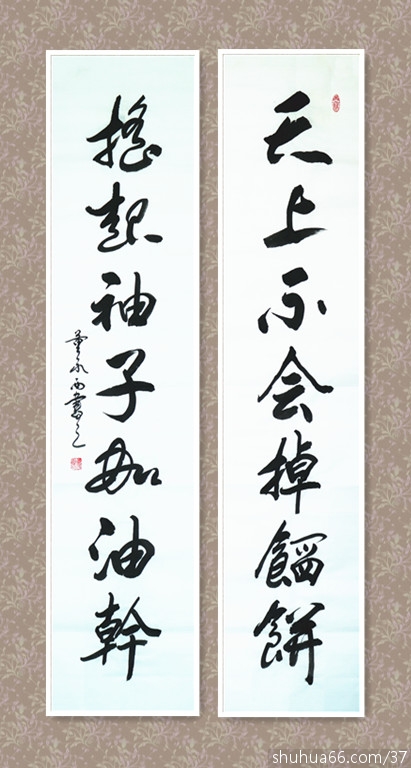 天上不会掉餡餅
搖起袖子加油幹
董永西書之
shuhua66.com/37